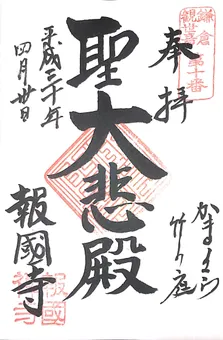 鎌倉
観世音第十番
奉拝
かまくら
竹の庭
聖大悲殿
平成三十年
四月廿日
報國寺
報國
寺